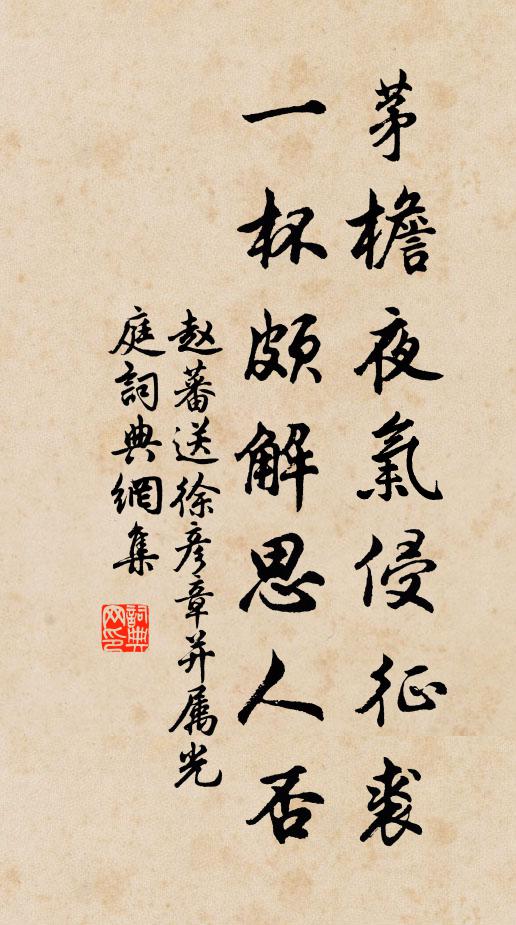 茅檐夜氣侵征裘
一杯頗解思人否
赵蕃送徐彦章并属光
庭詞典網集
詞典
网印